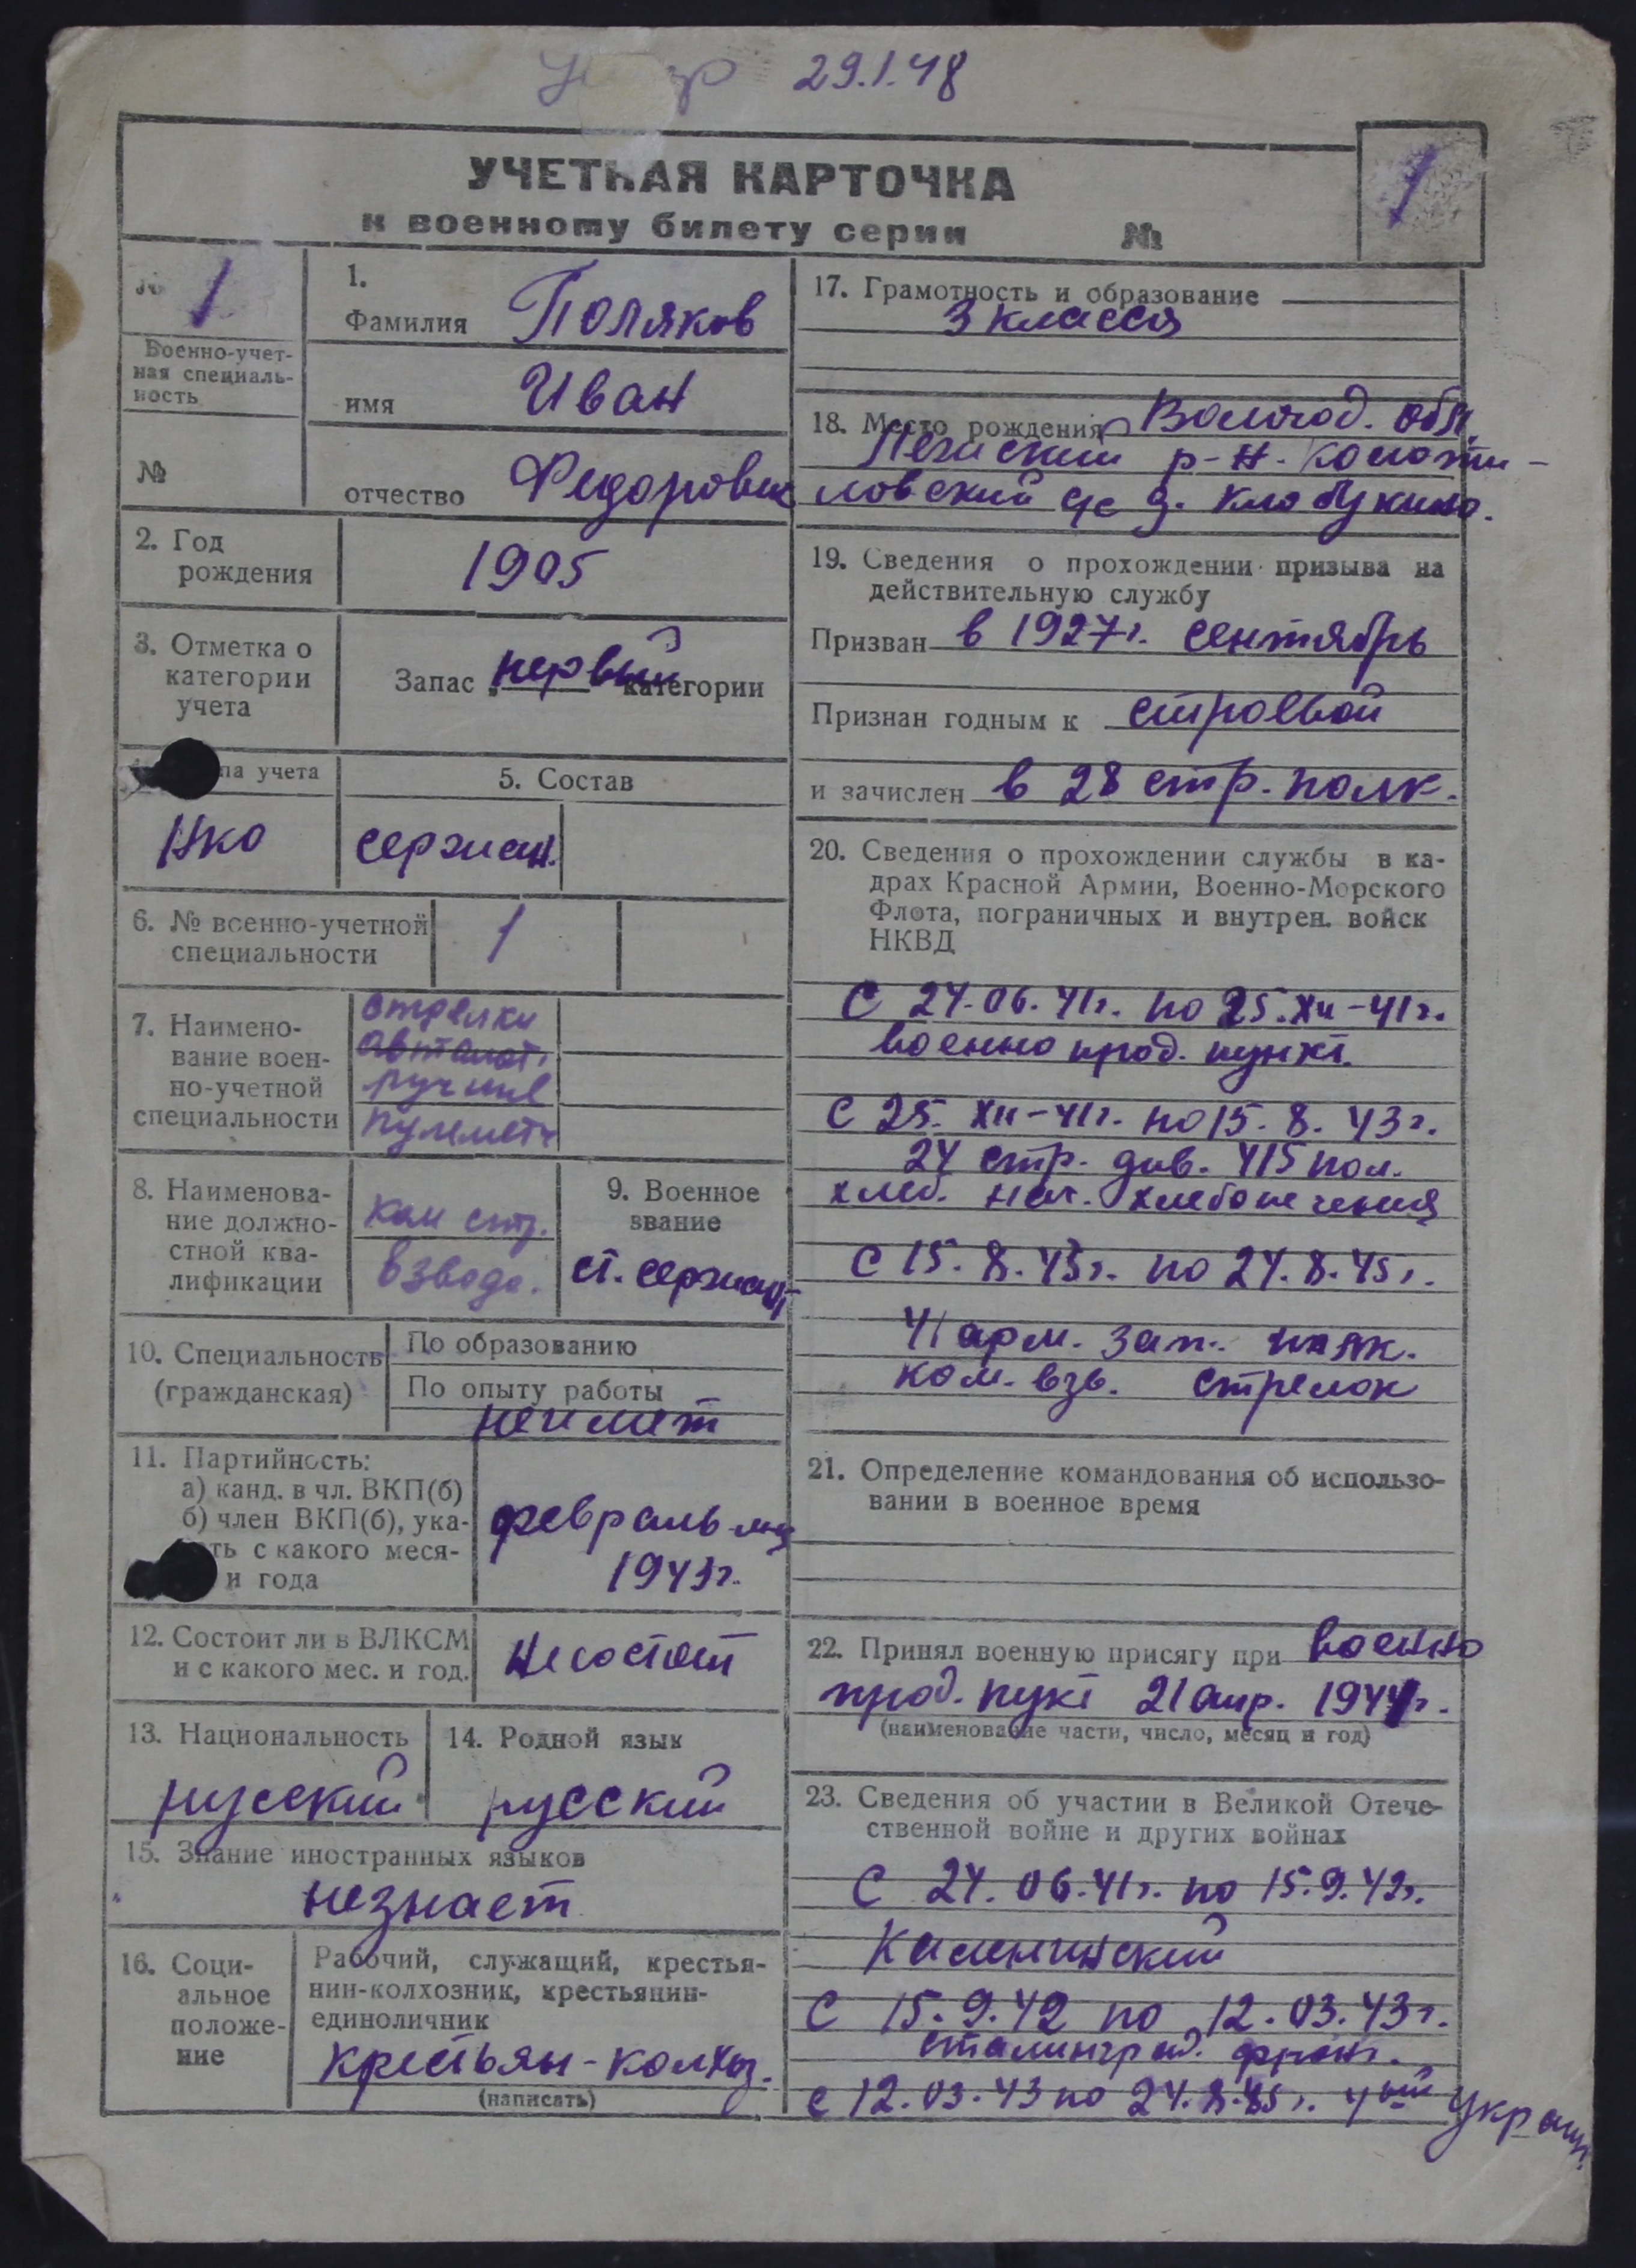 29.1.48
УЧЕТНАЯ КАРТОЧКА
к военному билету серии №
1
№ 1
Военно-учет-
ная специаль-
ность
№
1.
Фамилия Поляков
имя Иван
отчество Федорович
2. Год
рождения
1905
3. Отметка о
категории
учета
Запас первый категории
па учета
НКО
5. Состав
сержан.
6. № военно-учетной
специальности
1
7. Наимено-
вание воен-
но-учетной
специальности
стрелки
автомат.
ручные
пулемет
8. Наименова-
ние должно-
стной ква-
лификации
Ком стр.
взвода.
9. Военное
звание
ст. сержант
10. Специальность
(гражданская)
По образованию
По опыту работы
неимеет
11. Партийность:
а) канд. в чл. ВКП(б)
б) член ВКП(б), ука-
ть с какого меся-
и года
февраль м-ц
1943г.
12. Состоит ли в ВЛКСМ
и с какого мес. и год.
Не состоит
13. Национальность
русский
14. Родной язык
русский
15. Знание иностранных языков
незнает
16. Соци-
альное
положе-
ние
Рабочий, служащий, крестья-
нин-колхозник, крестьянин-
единоличник
крестьян-колхоз.
(написать)
17. Грамотность и образование
3 класса
18. Место рождения Волгод. обл.
р-н.
ловский с/с д. Клобукино.
19. Сведения о прохождении призыва на
действительную службу
Призван в 1927г. сентябрь
Признан годным к строевой
и зачислен в 28 стр. полк.
20. Сведения о прохождении службы в ка-
драх Красной Армии, Военно-Морского
Флота, пограничных и внутрен. войск
НКВД
С 24.06.41г. по 25.XII-41г.
военно прод. пункт.
С 25. XII-41г. по 15. 8. 43г.
24 стр. див. 415 пол.
хлеб. нач. хлебопечения
С 15. 8. 43г. по 24. 8. 45г.
41 арм. зап. полк.
ком. взв. стрелок
21. Определение командования об использо-
вании в военное время
22. Принял военную присягу при военно
прод. пукт 21 апр. 1941г.
(наименование части, число, месяц и год)
23. Сведения об участии в Великой Отече-
ственной войне и других войнах
С 24. 06.41г. по 15.9.42г.
Калининский
С 15.9.42 по 12.03.43г.
сталинград. фронт.
с 12.03.43 по 24.8.45г. 4ый Украин.